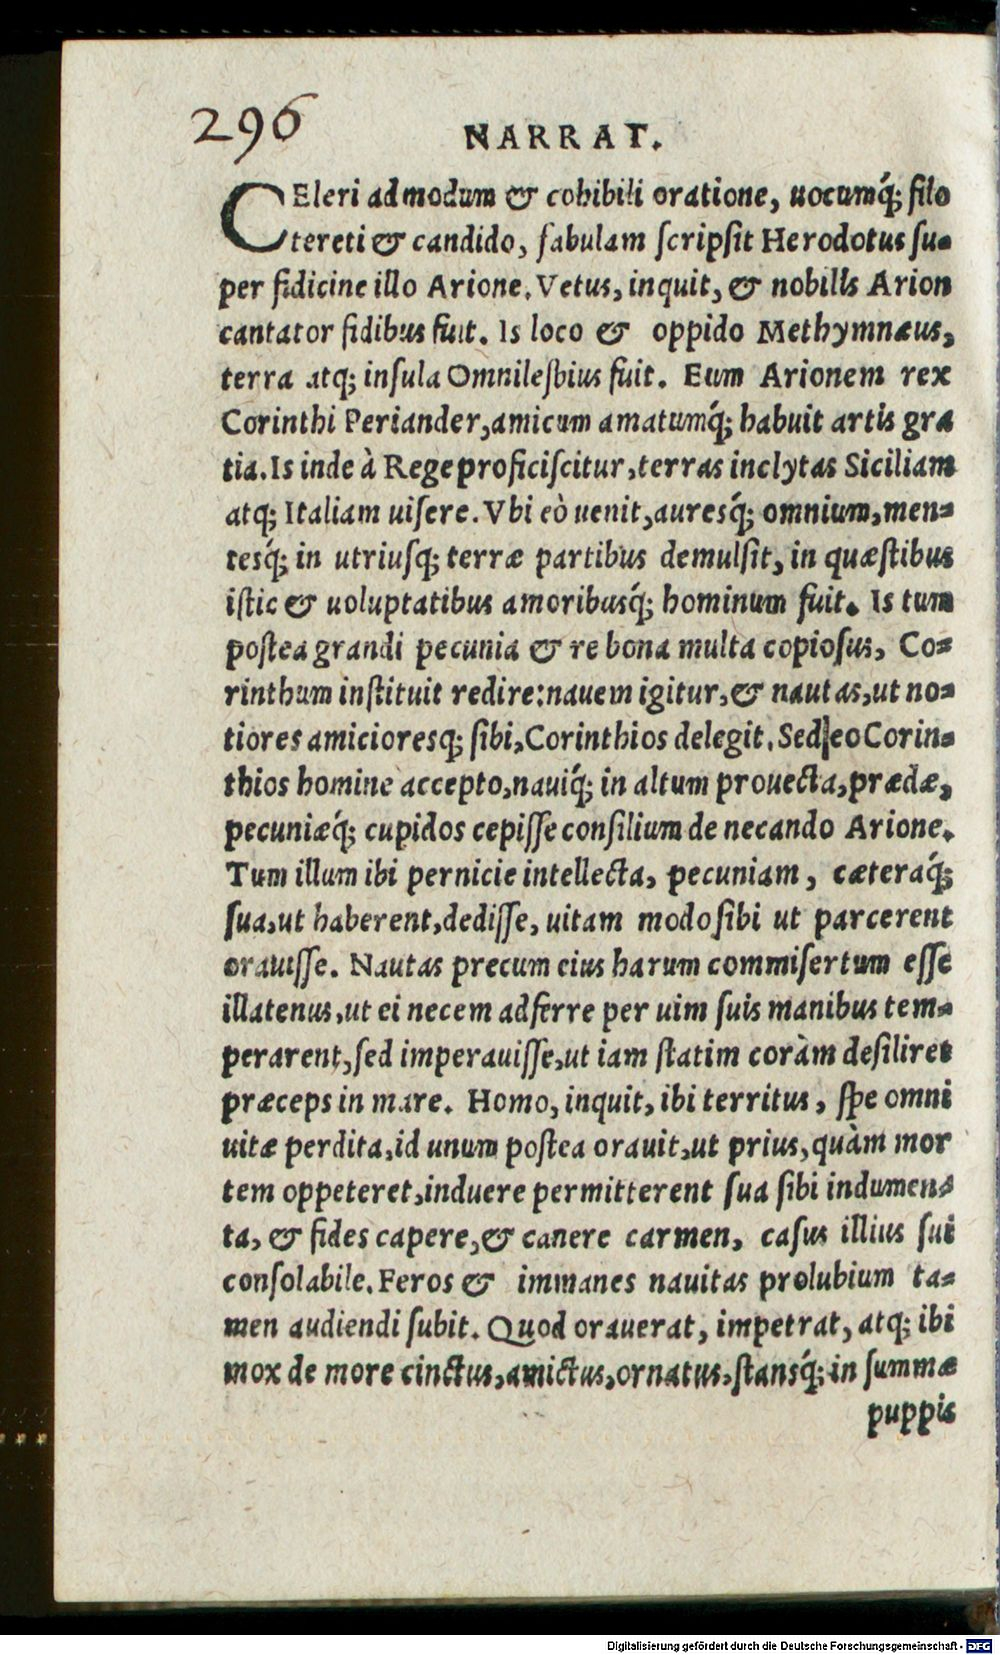 296
NARRAT.
CEleri admodum & cohibili oratione, uocumq́; filo
tereti & candido, fabulam ſcripſit Herodotus ſu-
per fidicine illo Arione. Vetus, inquit, & nobilis Arion
cantator fidibus fuit. Is loco & oppido Methymnæus,
terra atq; inſula Omnilesbius fuit. Eum Arionem rex
Corinthi Periander, amicum amatumq́; habuit artis gra
tia. Is inde à Rege proficiſcitur, terras inclytas Siciliam
atq; Italiam uiſere. Vbi eò uenit, auresq́; omnium, men-
tesq́; in utriuſq; terræ partibus demulſit, in quæſtibus
iſtic & uoluptatibus amoribusq́; hominum fuit. Is tum
poſtea grandi pecunia & re bona multa copioſus, Co-
rinthum inſtituit redire: nauem igitur, & nautas, ut no-
tiores amicioresq; ſibi, Corinthios delegit. Sed eo Corin-
thios homine accepto, nauiq́; in altum prouecta, prædæ,
pecuniæq́; cupidos cepiſſe conſilium de necando Arione.
Tum illum ibi pernicie intellecta, pecuniam, cæteraq́;
ſua, ut haberent, dediſſe, uitam modo ſibi ut parcerent
orauiſſe. Nautas precum eius harum commiſertum eſſe
illatenus, ut ei necem adferre per uim ſuis manibus tem-
perarent, ſed imperauiſſe, ut iam ſtatim coràm deſiliret
præceps in mare. Homo, inquit, ibi territus, ſpe omni
uitæ perdita, id unum poſtea orauit, ut prius, quàm mor
tem oppeteret, induere permitterent ſua ſibi indumen-
ta, & fides capere, & canere carmen, caſus illius ſui
conſolabile. Feros & immanes nauitas prolubium ta-
men audiendi ſubit. Quod orauerat, impetrat, atq; ibi
mox de more cinctus, amictus, ornatus, ſtansq́; in ſummæ
puppis
Digitalisierung gefördert durch die Deutsche Forschungsgemeinschaft - DFG